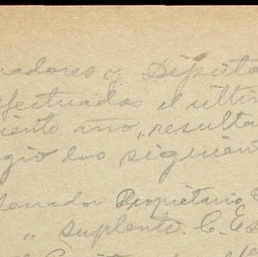 nadores y Diputa
efectuadas el últi
iente año, resulta
gio los siguient
Senador Propietario
" suplente. C. E